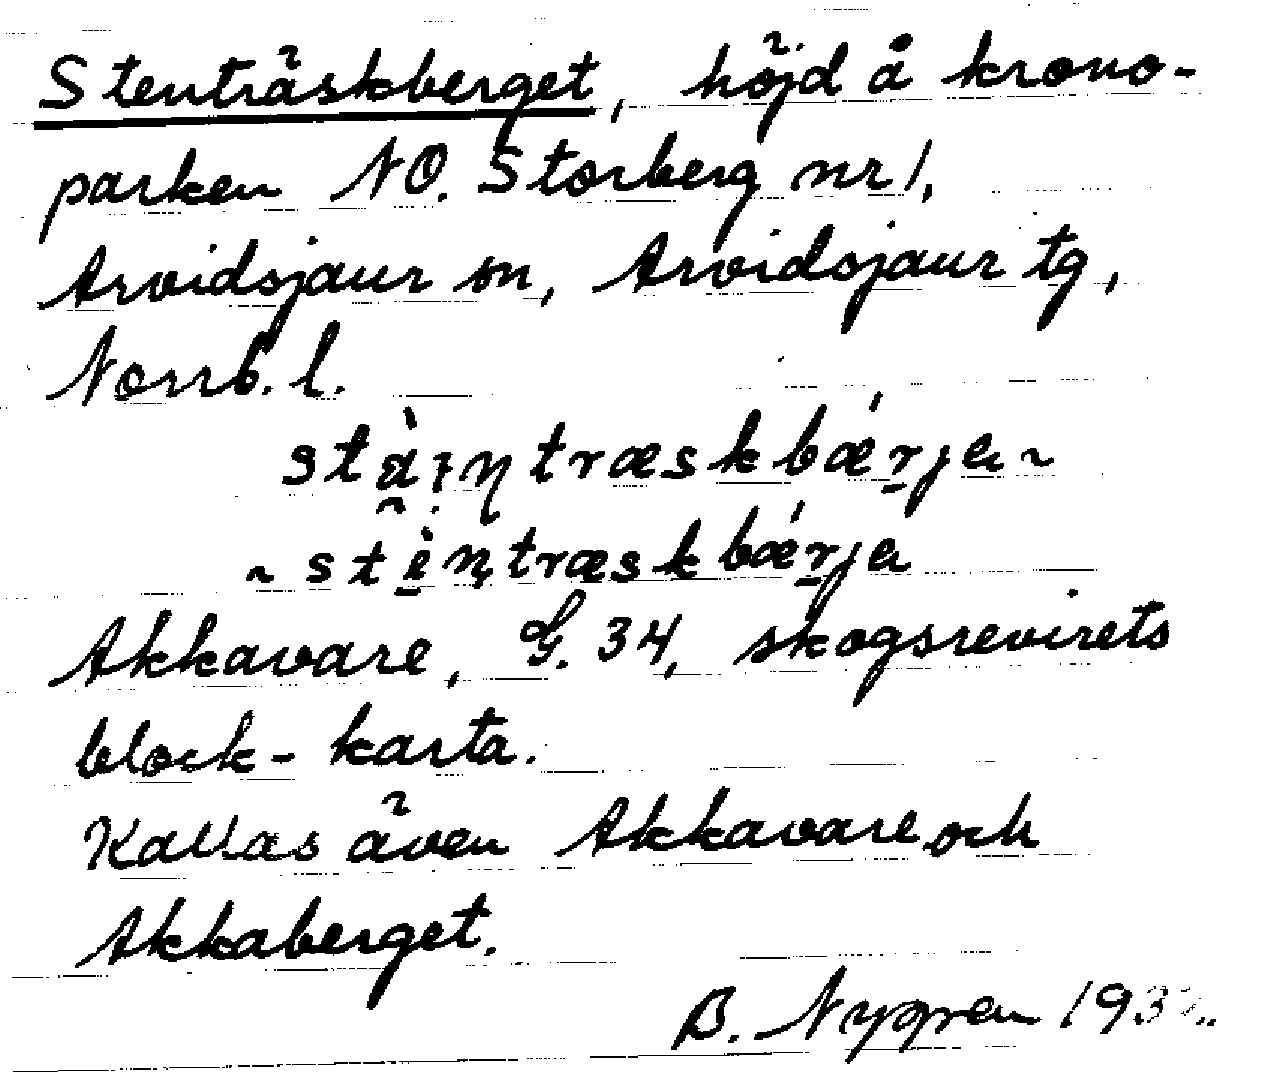 Stenträskberget, höjd å krono-
parken NO. Storberg nr 1,
Arvidsjaur sn, Arvidsjaur tg,
Norrb. l.
stàintræskbǽrja ~
~ stèntræskbǽrja
Akkavare, G. 34, skogsrevirets
block-karta.
Kallas även Akkavare och
Akkaberget.
B. Nygren